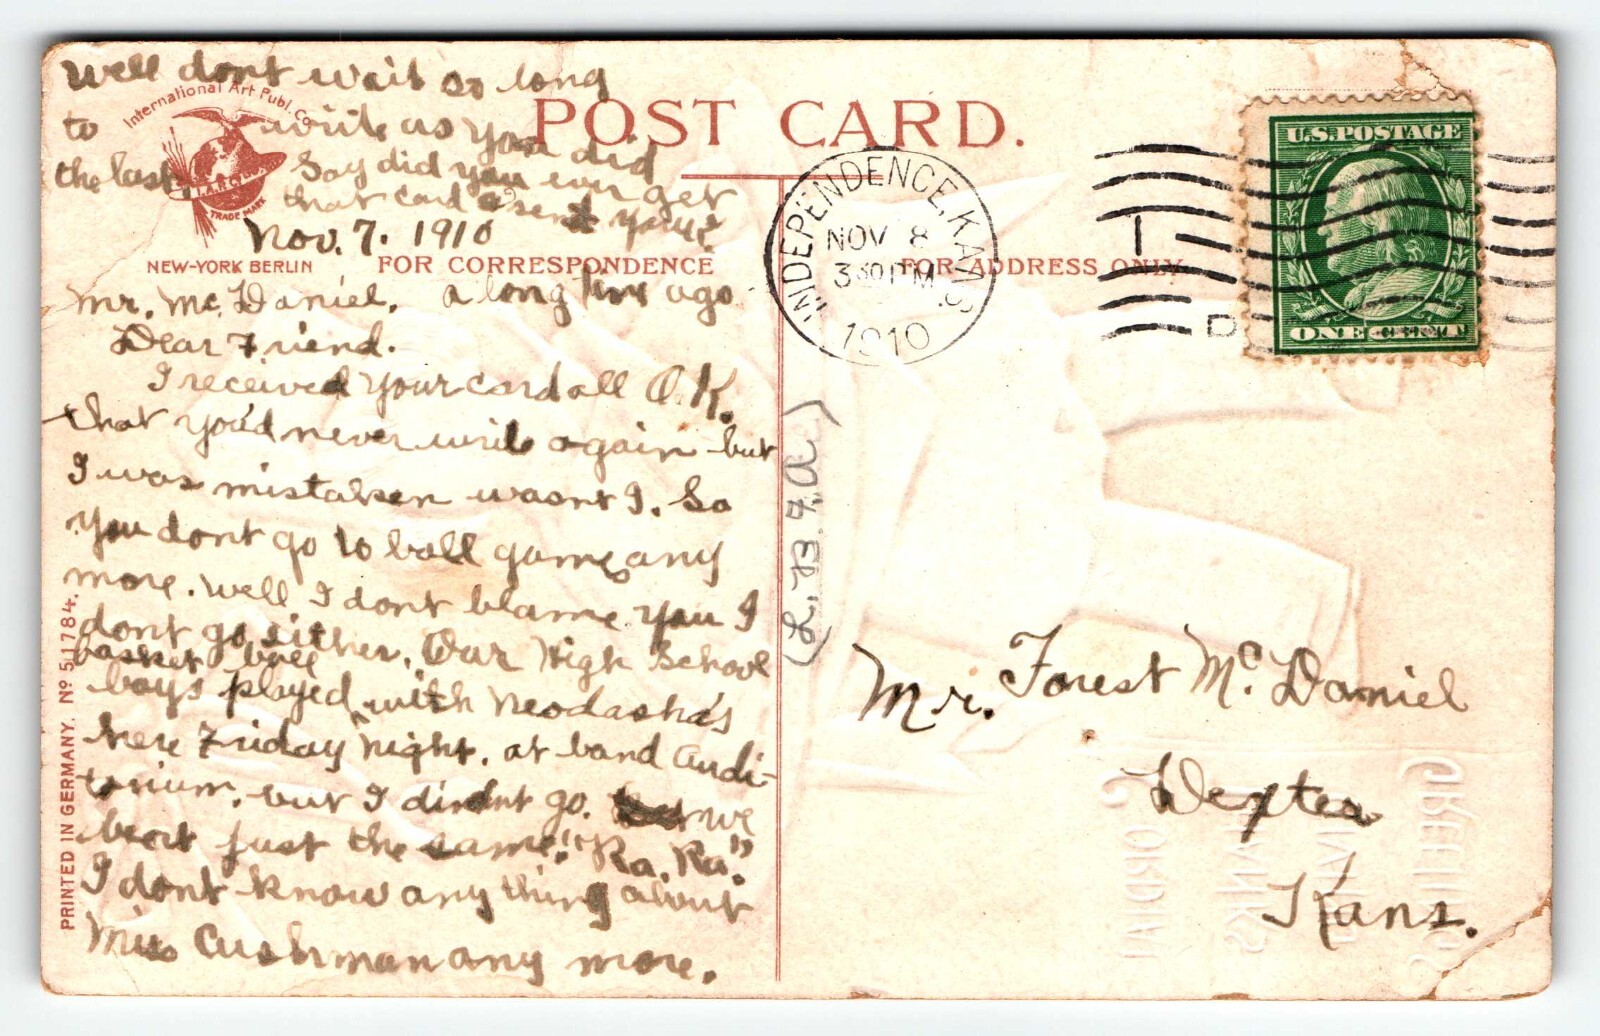 Well dont wait so long
to write as you did
the last. Say did you ever get
that card I sent you
a long time ago
International Art Publ. Co.
TRADE MARK
NEW-YORK BERLIN
POST CARD.
FOR CORRESPONDENCE
FOR ADDRESS ONLY
Nov. 7. 1910
Mr. McDaniel.
Dear Friend.
I received your card all O.K.
that you'd never write again but
I was mistaken wasnt I. So
you dont go to ball games any
more. Well I dont blame you I
dont go either. Our High School
basket ball
boys played with Neodasha's
here Friday night, at band Audi-
torium, but I didnt go. we
beat just the same. "Ra. Ra."
I dont know any thing about
Miss Cushman any more.
PRINTED IN GERMANY. No 51784.
(L.B.4.A)
INDEPENDENCE, KANS.
NOV 8
330 PM
1910
D
U.S. POSTAGE
ONE CENT
Mr. Forest McDaniel
Dexter
Kans.